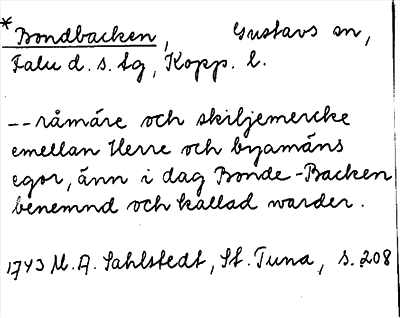 *Bondbacken, Gustavs sn,
Falu d. s. lg, Kopp. l.
--råmäre och skiljemercke
emellan Herre och byamäns
egor, änn i dag Bonde-Backen
benemnd och kallad warder.
1743 M. A. Sahlstedt, St. Tuna, s. 208